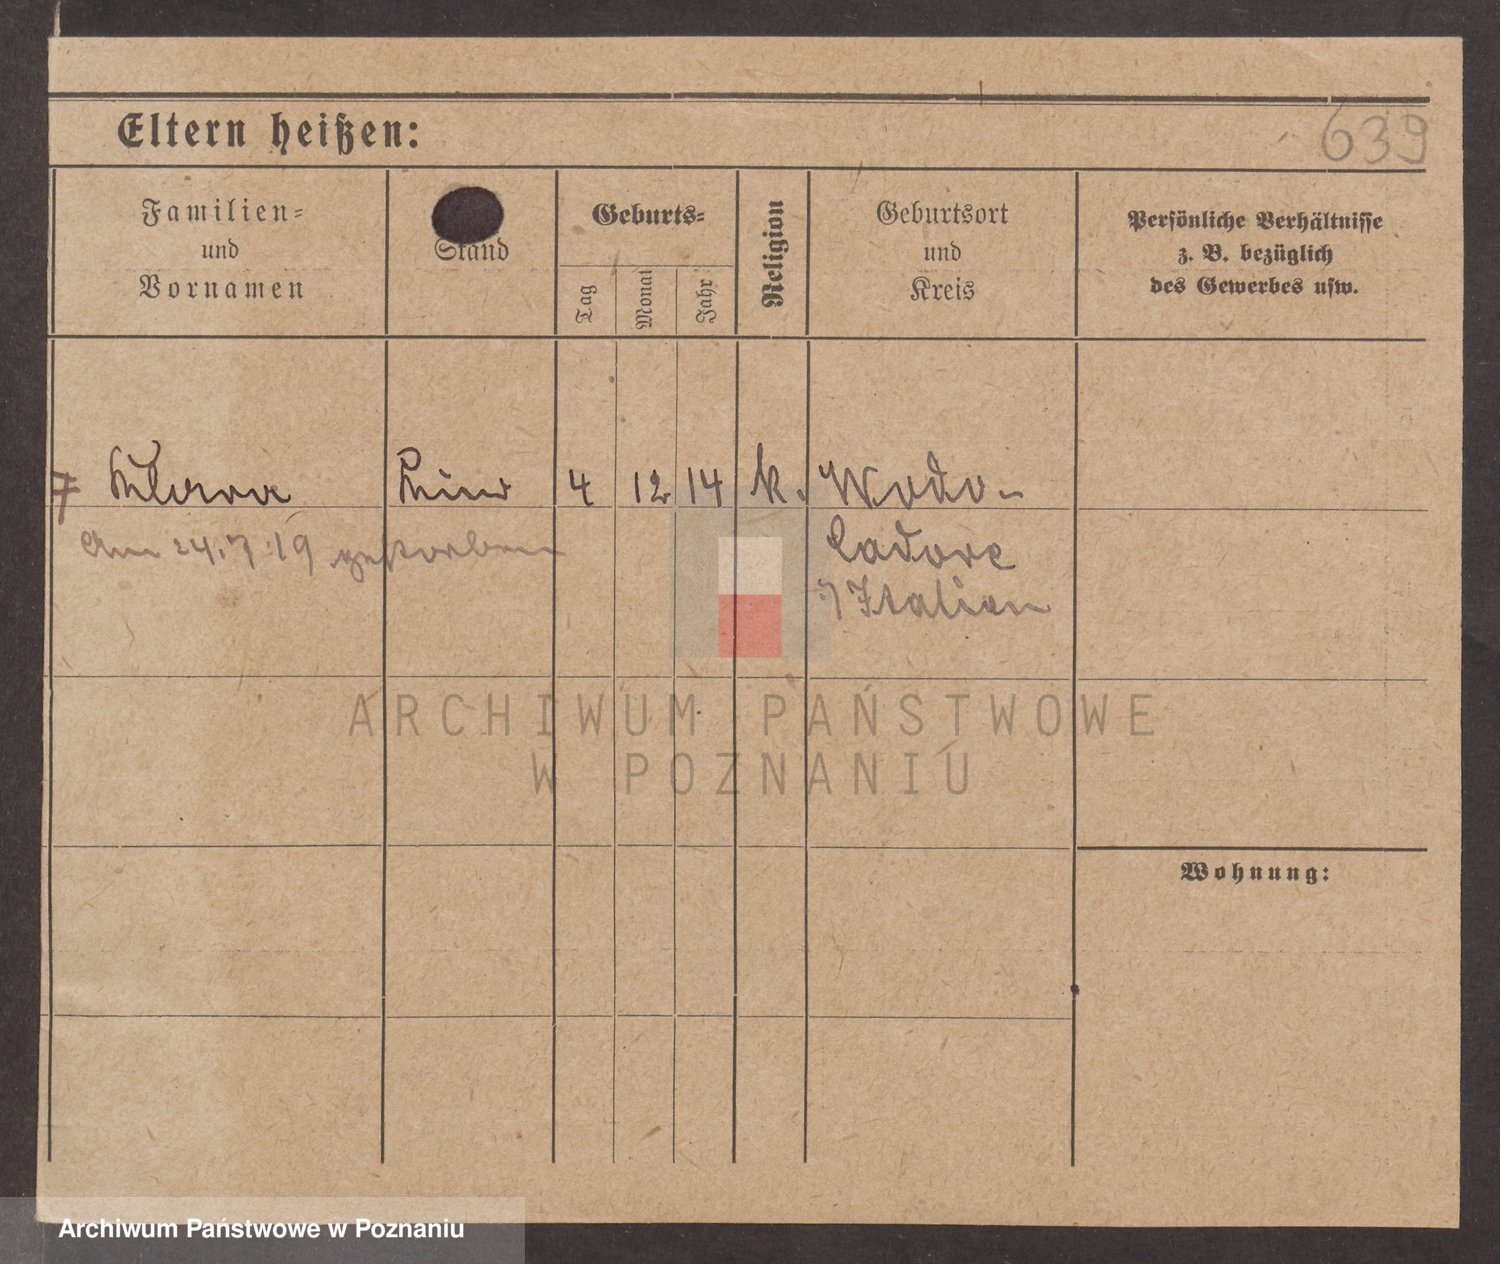 639
Eltern heißen:
Familien-
und
Vornamen
Stand
Geburts-
Tag
Monat
Jahr
Religion
Geburtsort
und
Kreis
Persönliche Verhältnisse
z. B. bezüglich
des Gewerbes usw.
7 Klara Kind 4 12 14 k. Wodo-
Am 24.7.19 gestorben
Cadore
Italien
ARCHIWUM PAŃSTWOWE
W POZNANIU
Wohnung:
Archiwum Państwowe w Poznaniu